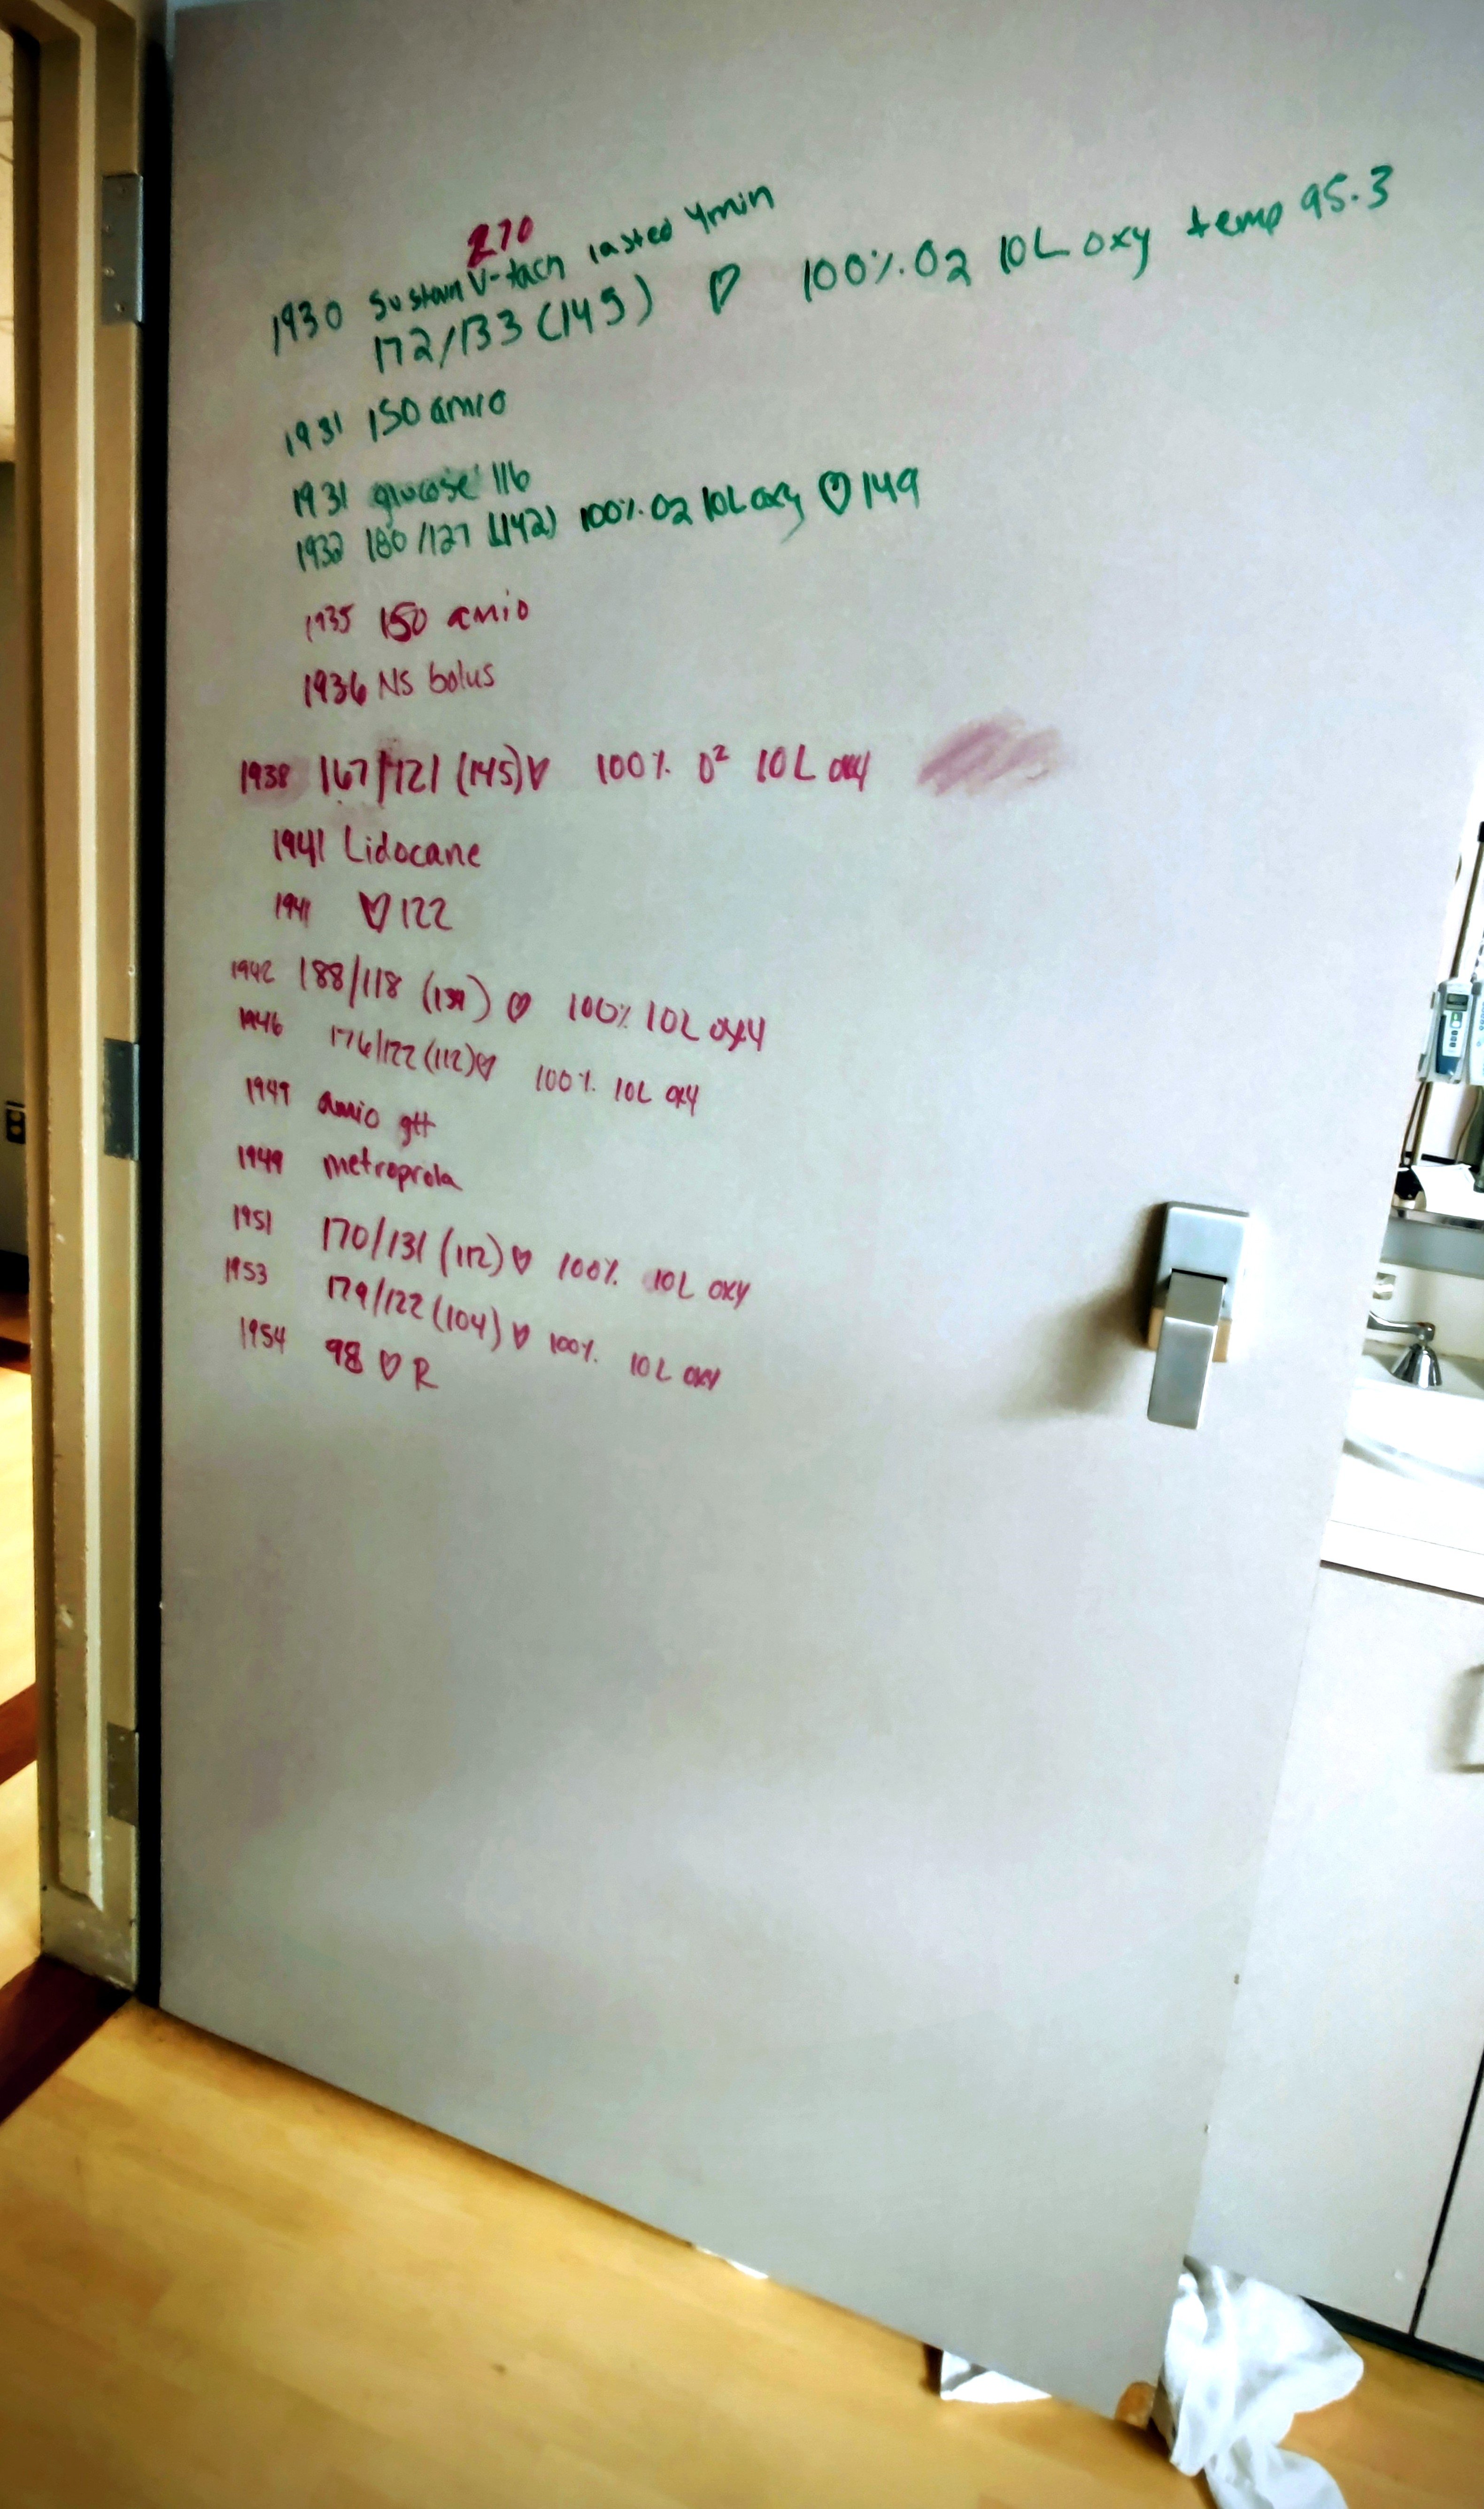 270
1930 Sustain V-tach lasted 4min
172/133 (145) ♡ 100% O2 10L oxy temp 95.3
1931 150 amio
1931 glucose 116
1932 180/127 (142) 100% O2 10L oxy ♡ 149
1935 150 amio
1936 NS bolus
1938 167/121 (145) ♡ 100% O² 10L oxy
1941 Lidocane
1941 ♡ 122
1942 188/118 (139) ♡ 100% 10L oxy
1946 176/122 (112) ♡ 100% 10L oxy
1949 amio gtt
1949 metroprola
1951 170/131 (112) ♡ 100% 10L oxy
1953 179/122 (104) ♡ 100% 10L oxy
1954 98 ♡ R